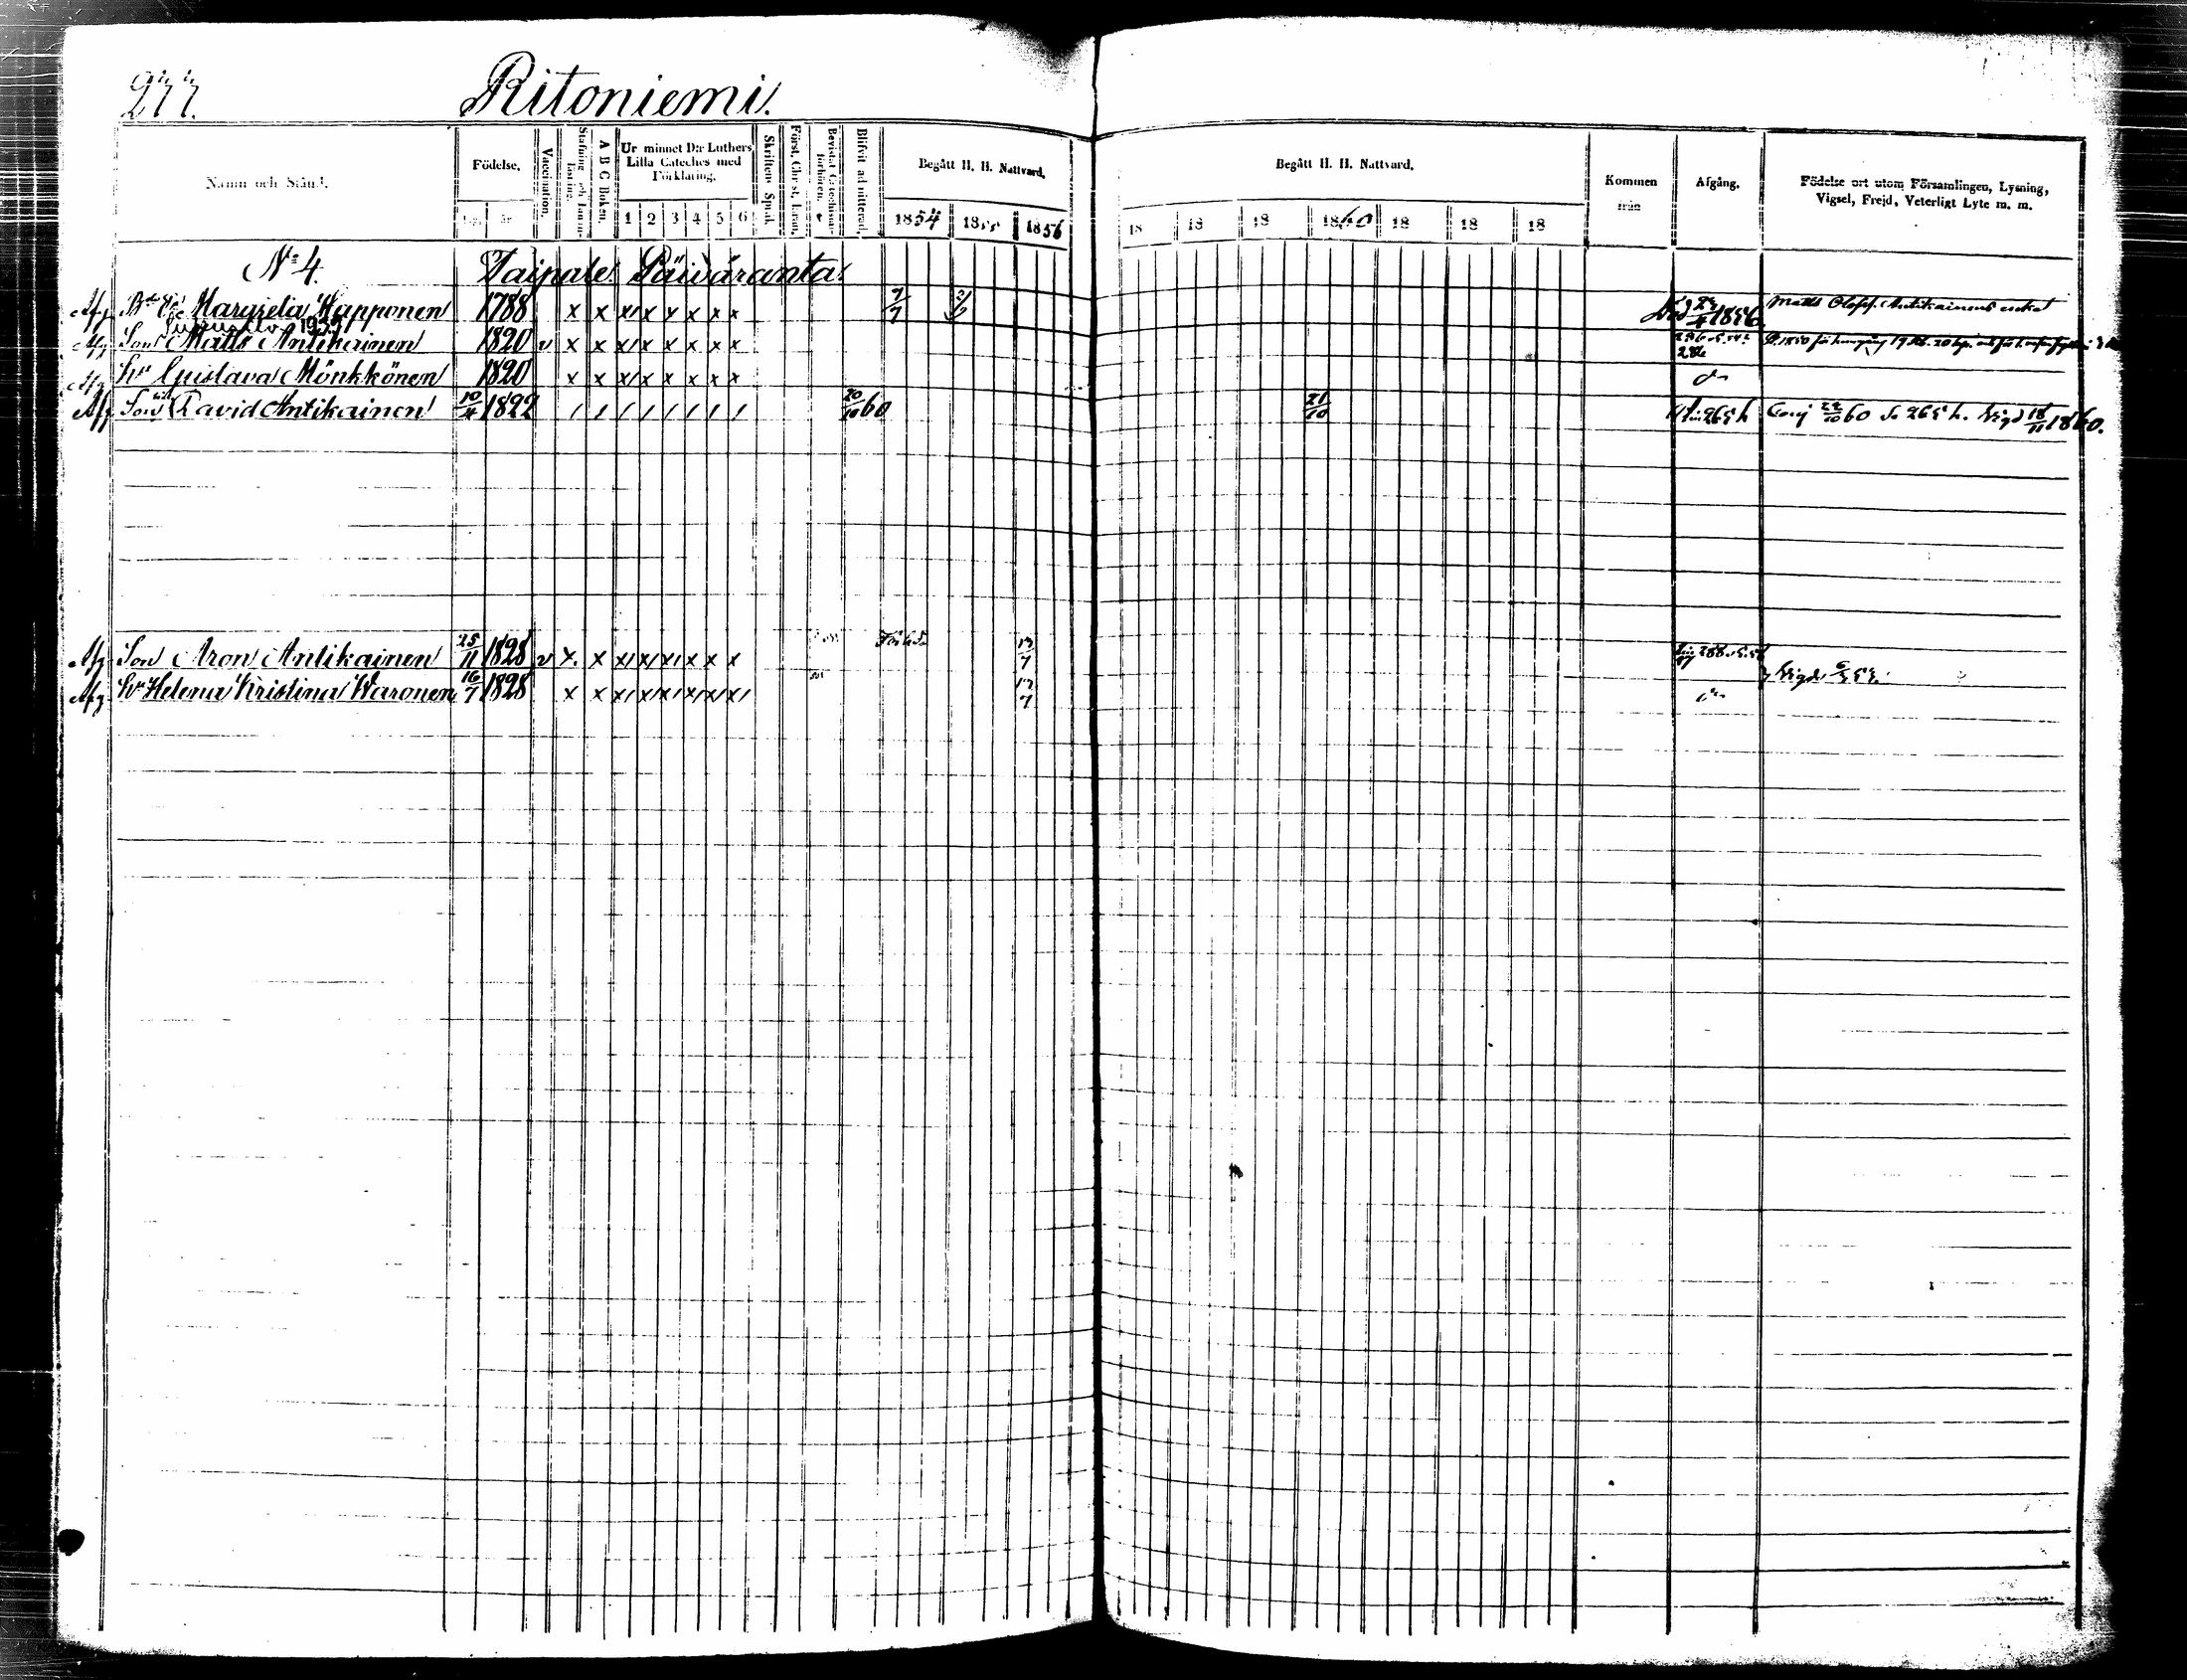 277.
Ritoniemi.
Namn och Stånd.
Födelse.
dag
år
Vaccination.
Stafning och Innanläsning.
A B C Boken.
Ur minnet D:r Luthers Lilla Cateches med Förklaring.
1 2 3 4 5 6
Skriftens Språk.
Först. Christ. Kram.
Bevistat Catechismiförhören.
Blifvit admitterad.
Begått H. H. Nattvard.
1854 1855 1856
Begått H. H. Nattvard.
18 18 18 1860 18 18 18
Kommen från
Afgång.
Födelse ort utom Församlingen, Lysning, Vigsel, Frejd, Veterligt Lyte m. m.
N:o 4. Taipale Päiväranta
Afg Margreta Happonen 1788 x x x x x x x x 9/7 Död 1856 Matts Olofss. Antikainens enka
Afg Son Matts Antikainen 1820 v x x x x x x x x
Afg Hu Gustava Mönkkönen 1820 x x x x x x x x
Afg Son David Antikainen 10/4 1822 / / / / / / / / 20/10 60 21/10 265 h 60 265 h. Vigd 18/11 1860.
Afg Son Aron Antikainen 25/11 1828 v x x x x x x x x 13/7 288
Afg Hu Helena Kristina Waronen 16/7 1828 x x x x x x x x 13/7 Vigde